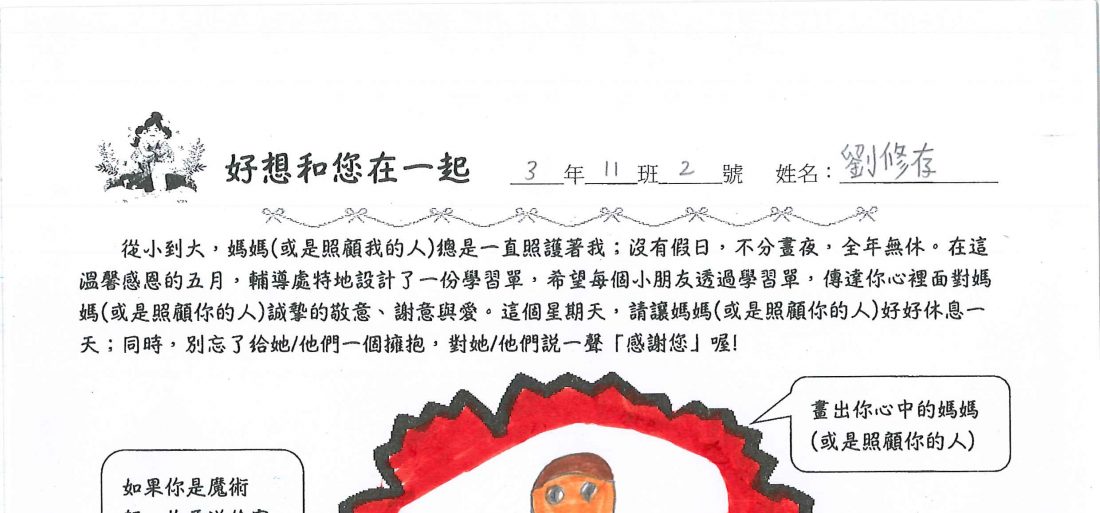 好想和您在一起 3年11班2號 姓名：劉修存
從小到大，媽媽(或是照顧我的人)總是一直照護著我；沒有假日，不分晝夜，全年無休。在這
溫馨感恩的五月，輔導處特地設計了一份學習單，希望每個小朋友透過學習單，傳達你心裡面對媽
媽(或是照顧你的人)誠摯的敬意、謝意與愛。這個星期天，請讓媽媽(或是照顧你的人)好好休息一
天；同時，別忘了給她/他們一個擁抱，對她/他們說一聲「感謝您」喔!
畫出你心中的媽媽
(或是照顧你的人)
如果你是魔術